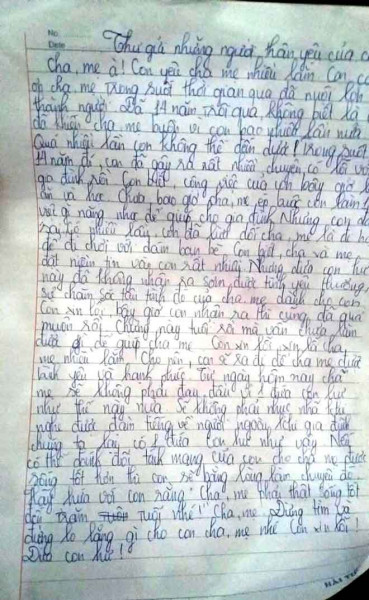 No.
Date
Thư gửi những người thân yêu của c
Cha, mẹ à! Con yêu cha mẹ nhiều lắm. Con, cả
ơn cha, mẹ trong suốt thời gian qua đã nuôi lớn
thành người. Đã 14 năm trôi qua, không biết là
đã khiến cha mẹ buồn vì con bao nhiêu lần nữa
Quá nhiều lần con không thể đếm được! Trong suốt
14 năm đó, con đã gây ra rất nhiều chuyện, có lỗi với
gia đình rồi. Con biết, công việc của con bây giờ là
ăn và học. Chưa bao giờ cha, mẹ ép buộc con làm
việc gì nặng như để giúp cho gia đình. Nhưng con đã
rất nhiều lần, con đã lừa dối cha, mẹ là đi học
để đi chơi với đám bạn bè. Con biết, cha và mẹ
đặt niềm tin vào con rất nhiều. Nhưng đứa con hư
này đã không nhận ra sớm được tình yêu thương,
sự chăm sóc tận tình đó của cha, mẹ dành cho con
Con xin lỗi, bây giờ con nhận ra thì cũng đã quá
muộn rồi. Chừng này tuổi rồi mà vẫn chưa làm
được gì để giúp cha mẹ. Con xin lỗi, xin lỗi cha
mẹ nhiều lắm! Cho nên, con sẽ ra đi để cha mẹ được
bình yên và hạnh phúc. Từ ngày hôm nay cha
mẹ sẽ không phải đau đầu vì 1 đứa con hư
như thế này nữa. Sẽ không phải nhục nhã khi
nghe được đàm tiếng về người ngoài khi gia đình
chúng ta lại có 1 đứa con hư như vậy. Nếu
có thể đánh đổi tính mạng của con cho cha mẹ được
sống tốt hơn thì con sẽ bằng lòng làm chuyện ấy
Hãy hứa với con rằng "Cha, mẹ phải thật sống tốt
đến trăm tuổi nhé!" Cha, mẹ đừng tìm và
đừng lo lắng gì cho con cha, mẹ nhé. Con xin lỗi!
Đứa con hư!